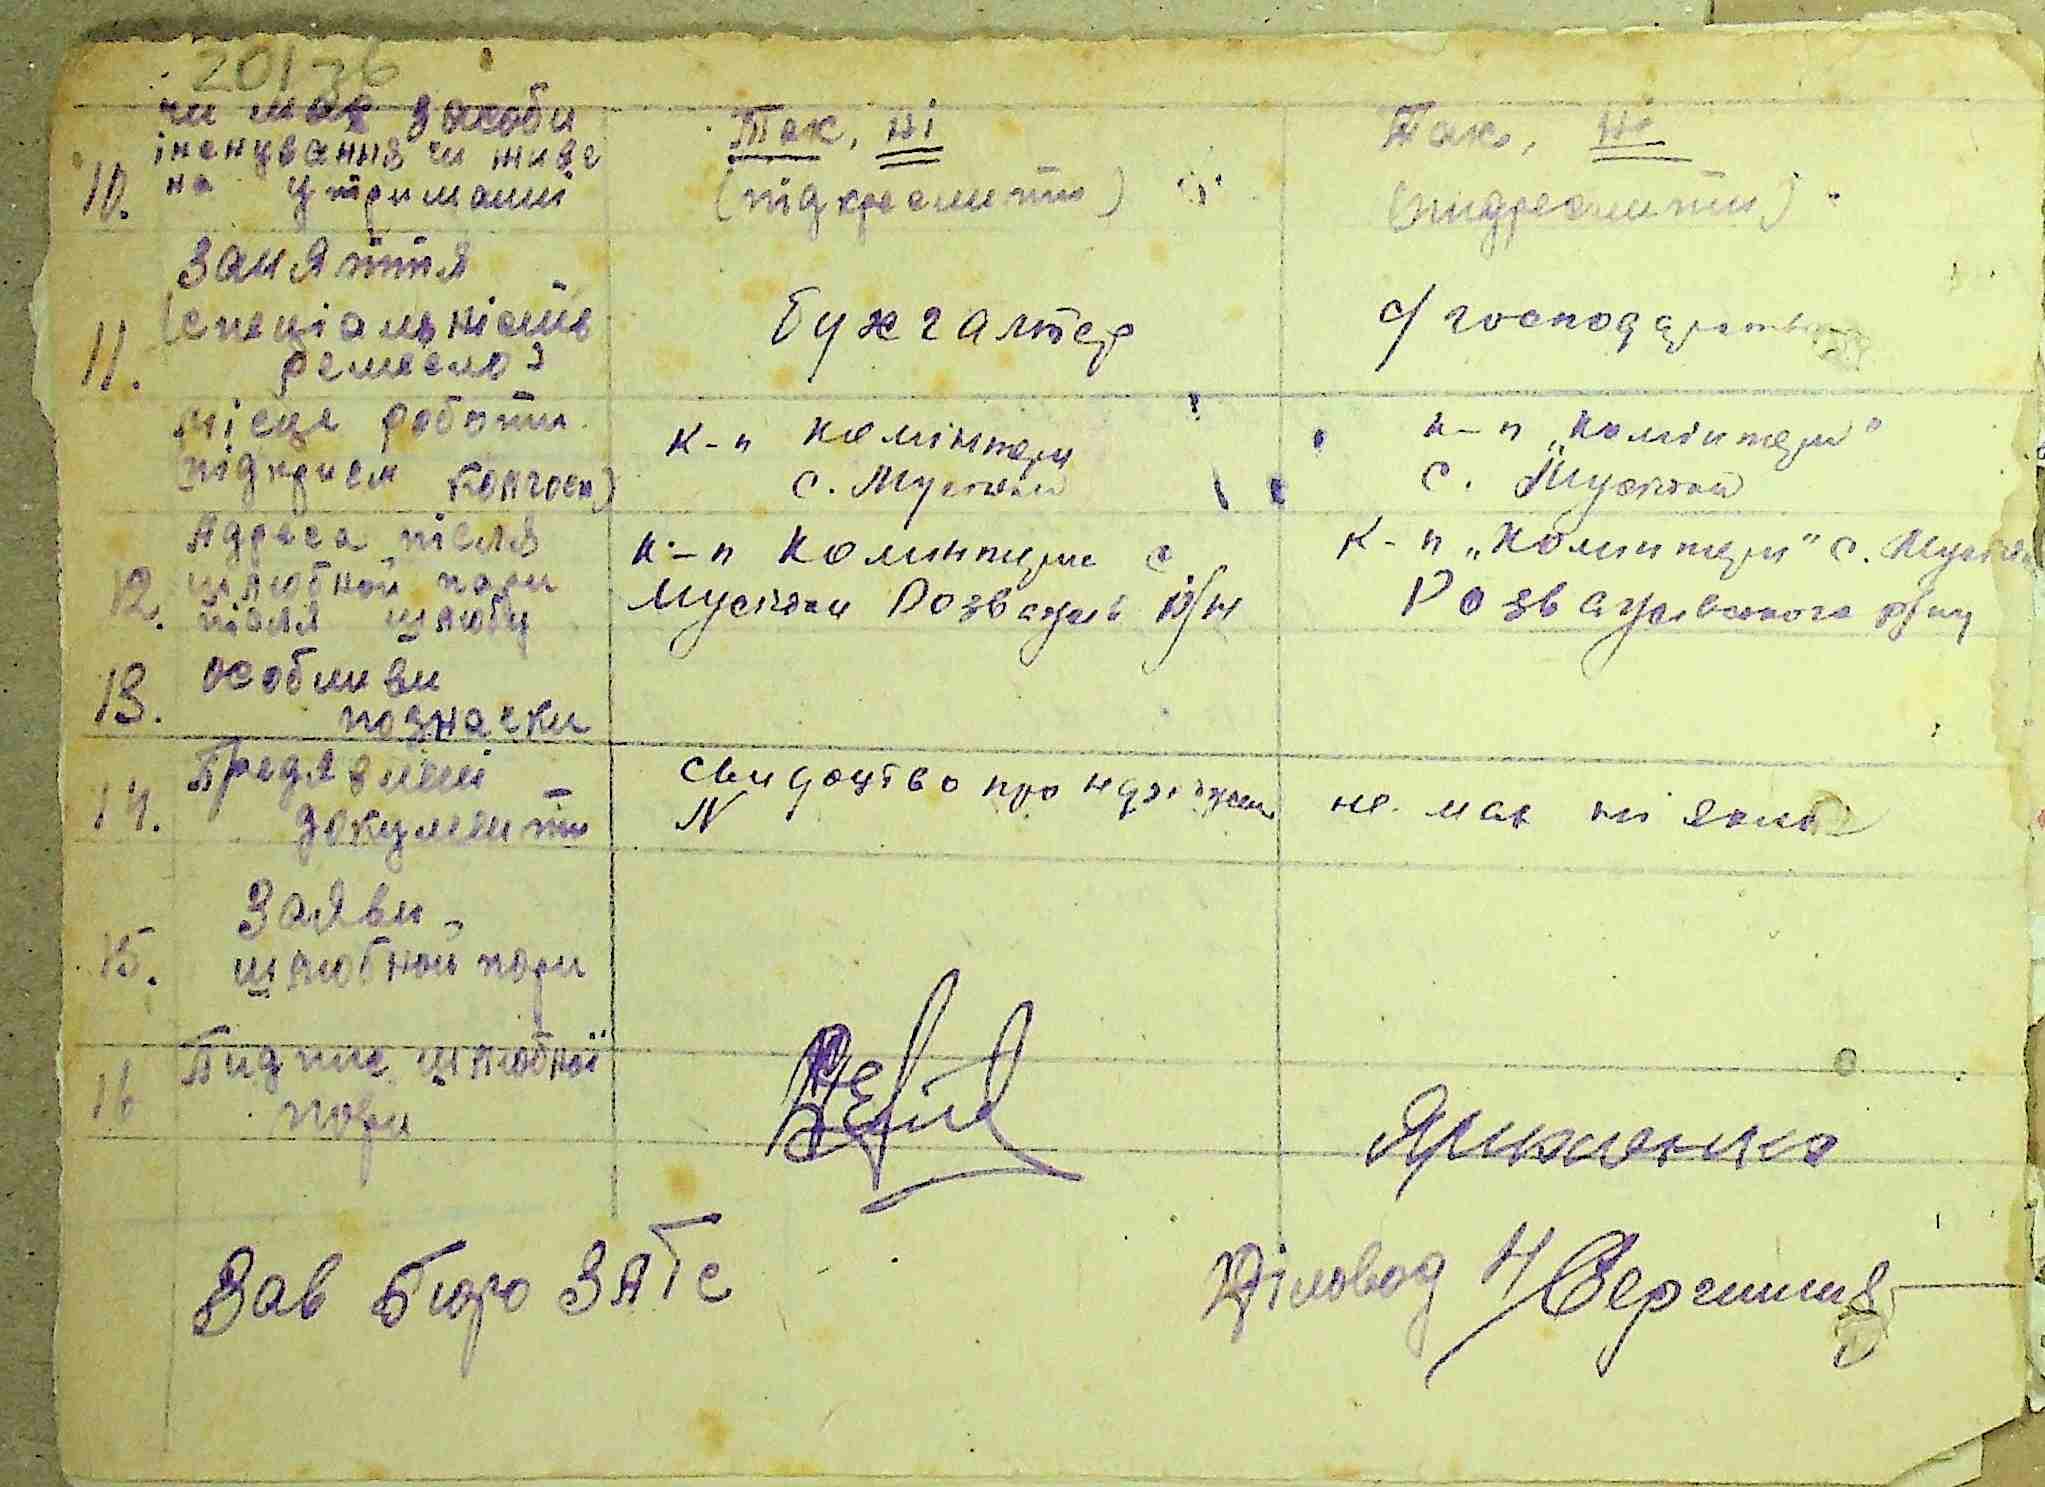 20136
чи має засоби
існування чи живе
10. на утриманні
Так, ні
(підкреслити)
Так, ні
(пидреслити)
Заняття
11. (спеціальність
ремесло)
бухгалтер
с/господарство
місце роботи
(підприєм колгосп)
к-п Комінтерн
с. Мусійки
к-п „Комінтерн"
с. Мусійки
Адреса після
12. шлюбной пари
після шлюбу
к-п Коминтерн с
Мусійки Розважів р/н
к-п „Коминтерн" с. Мусійки
Розважівського р/ну
13. особливи
позначки
14. Предявлені
документи
свидоцтво про
N
не має ні яких
15. Заяви
шлюбной пари
16 Пидпис шлюбної
пари
Яриженко
Зав бюро ЗАГс
Діловод